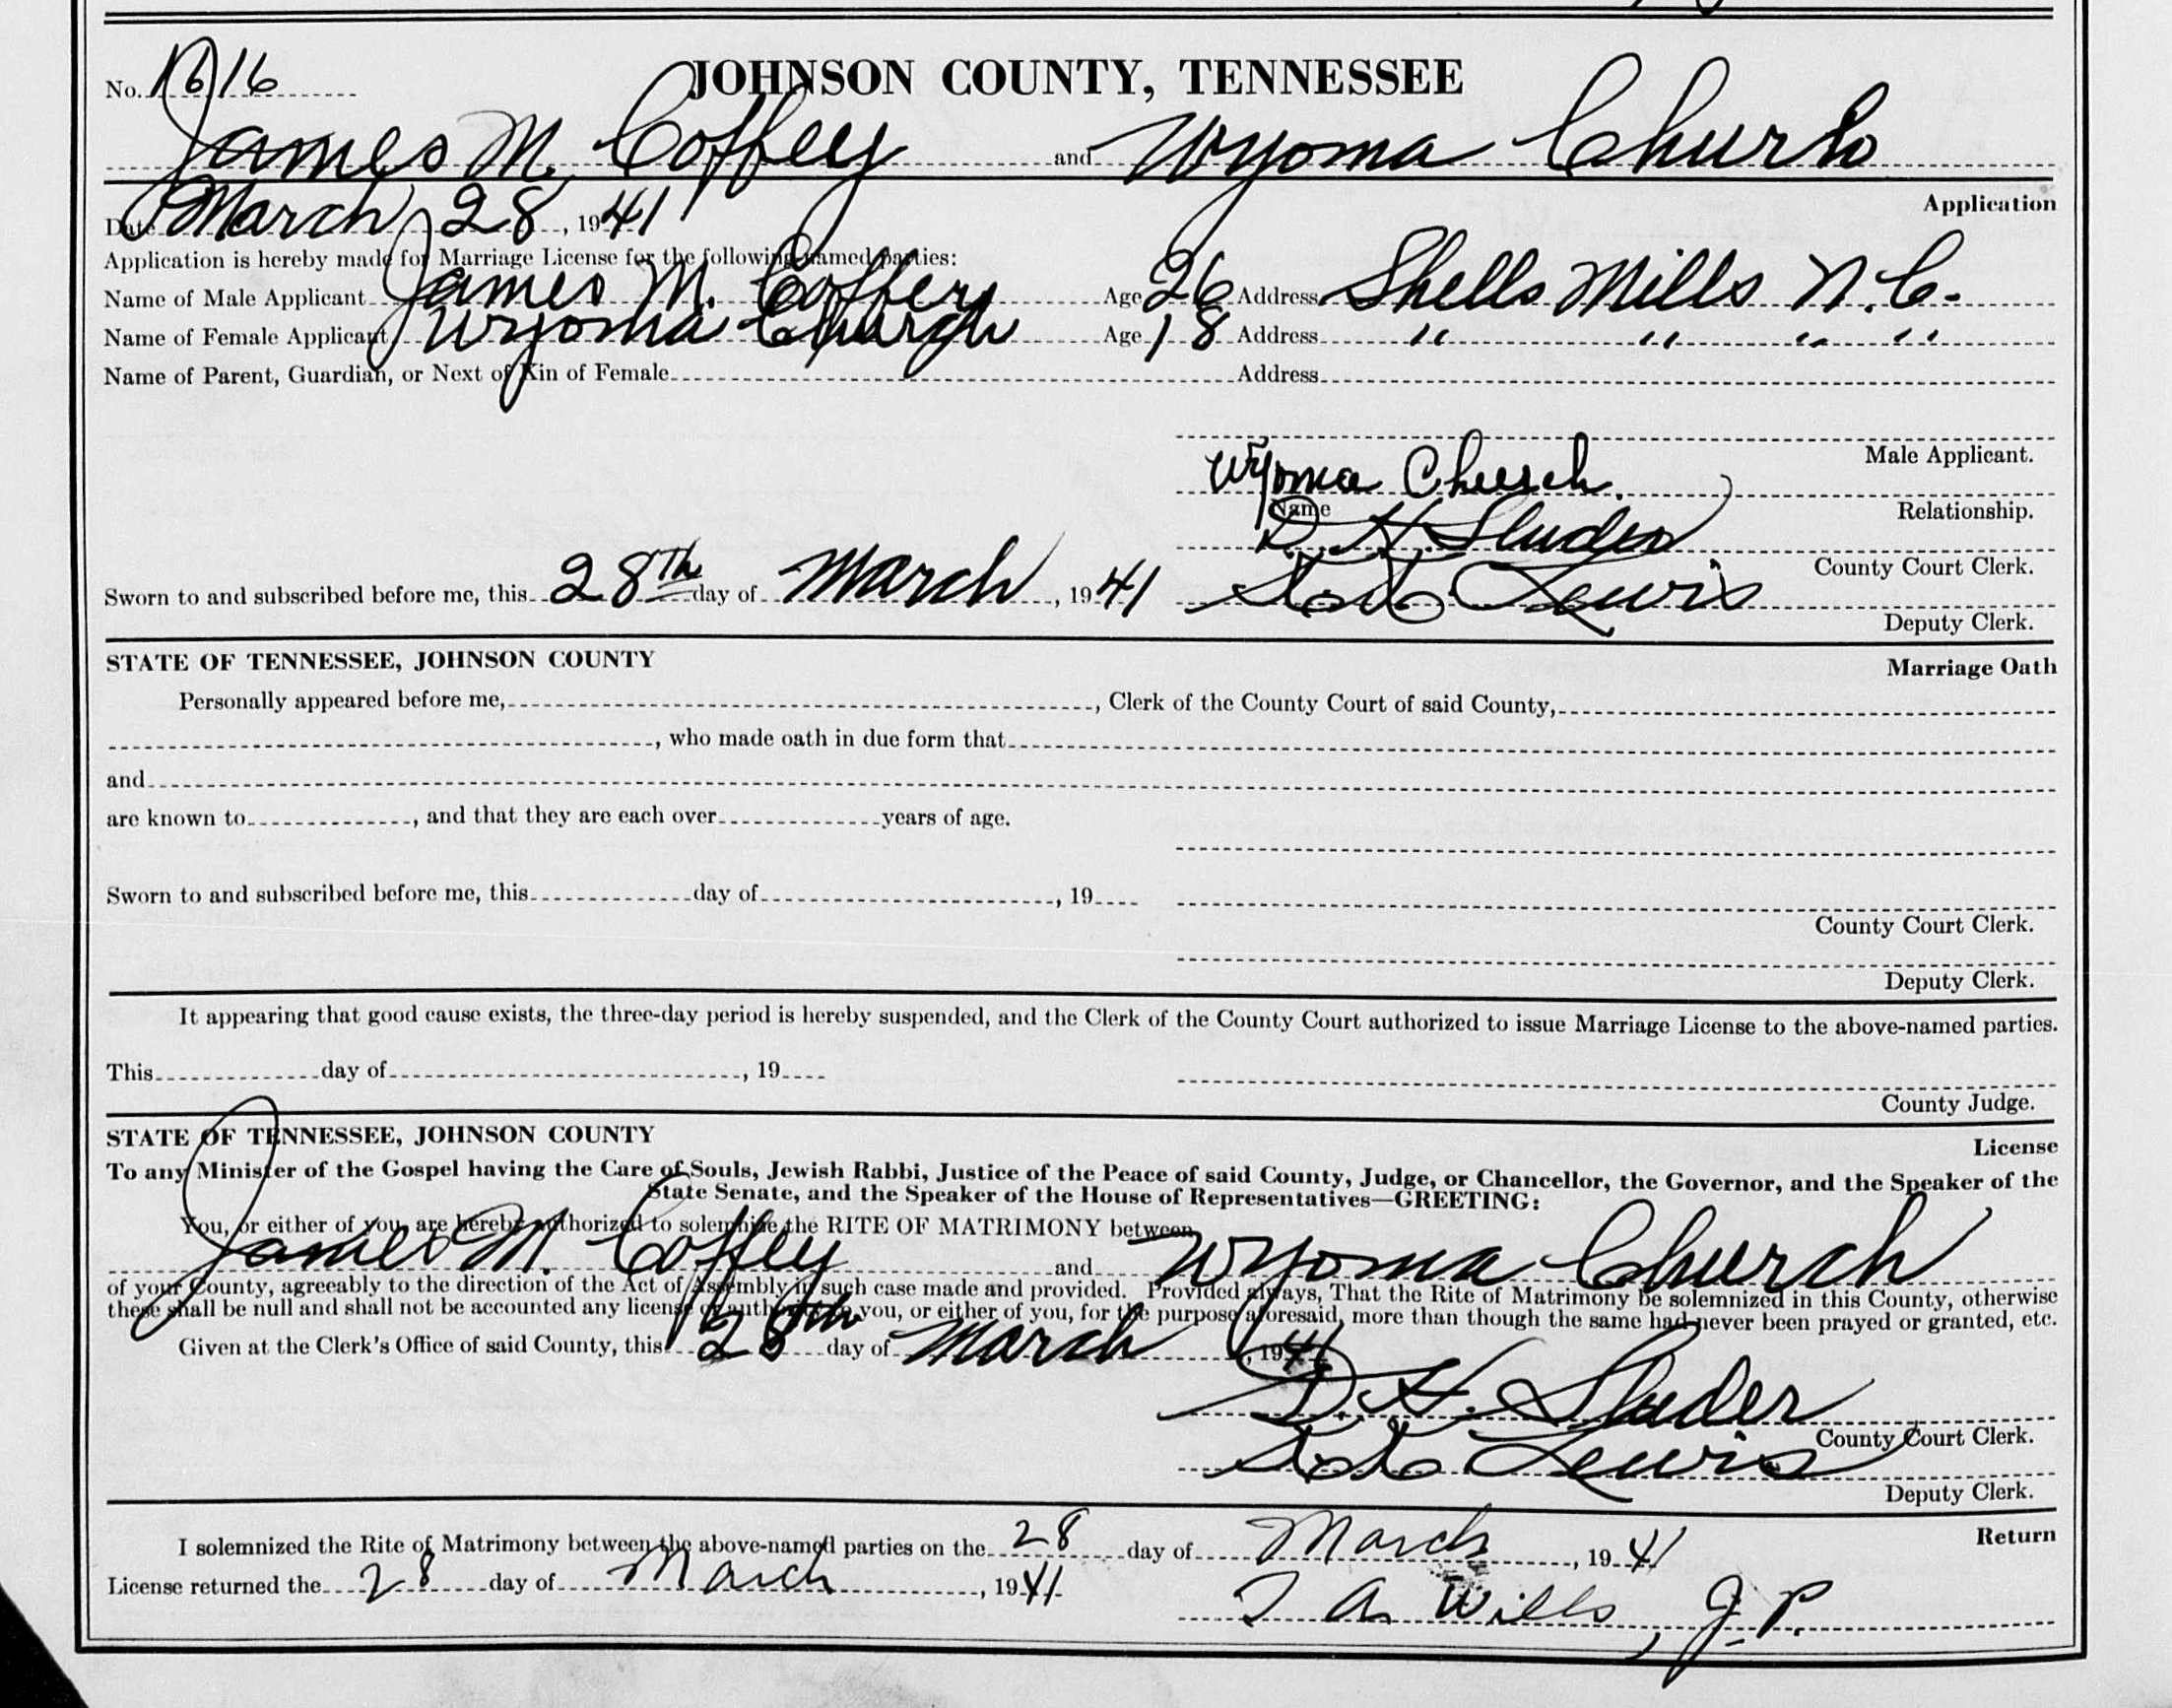 No. 1616 JOHNSON COUNTY, TENNESSEE
James M. Coffey and Wyoma Church
Application
Date March 28, 1941
Application is hereby made for Marriage License for the following named parties:
Name of Male Applicant James M. Coffey Age 26 Address Shells Mills N.C.
Name of Female Applicant Wyoma Church Age 18 Address " " " "
Name of Parent, Guardian, or Next of Kin of Female Address
Male Applicant.
Wyoma Church.
Name Relationship.
D. H. Sluder
County Court Clerk.
Sworn to and subscribed before me, this 28th day of March, 1941 Lewis
Deputy Clerk.
STATE OF TENNESSEE, JOHNSON COUNTY Marriage Oath
Personally appeared before me, , Clerk of the County Court of said County,
, who made oath in due form that
and
are known to , and that they are each over years of age.
Sworn to and subscribed before me, this day of , 19
County Court Clerk.
Deputy Clerk.
It appearing that good cause exists, the three-day period is hereby suspended, and the Clerk of the County Court authorized to issue Marriage License to the above-named parties.
This day of , 19
County Judge.
STATE OF TENNESSEE, JOHNSON COUNTY License
To any Minister of the Gospel having the Care of Souls, Jewish Rabbi, Justice of the Peace of said County, Judge, or Chancellor, the Governor, and the Speaker of the
State Senate, and the Speaker of the House of Representatives—GREETING:
You, or either of you, are hereby authorized to solemnize the RITE OF MATRIMONY between
James M. Coffey and Wyoma Church
of your County, agreeably to the direction of the Act of Assembly in such case made and provided. Provided always, That the Rite of Matrimony be solemnized in this County, otherwise
these shall be null and shall not be accounted any license or authority to you, or either of you, for the purpose aforesaid, more than though the same had never been prayed or granted, etc.
Given at the Clerk's Office of said County, this 28th day of March, 1941
D. H. Sluder
County Court Clerk.
Lewis
Deputy Clerk.
Return
I solemnized the Rite of Matrimony between the above-named parties on the 28 day of March, 1941
License returned the 28 day of March, 1941
T A Wills, J.P.